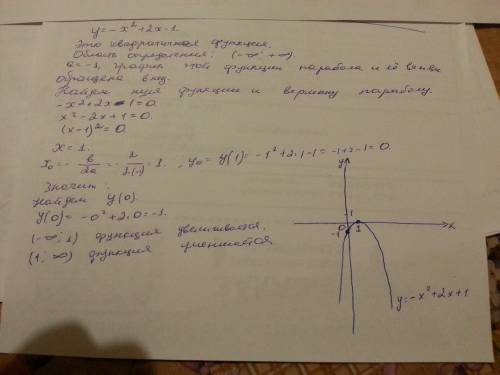 y = -x² + 2x - 1.
Это квадратичная функция.
Область определения: (-∞; +∞).
a = -1, график этой функции парабола и её ветви
обращена вниз.
Найдем нули функции и вершину параболу.
-x² + 2x - 1 = 0.
x² - 2x + 1 = 0.
(x - 1)² = 0.
x = 1.
x₀ = - b/2a = - 2/2·(-1) = 1. , y₀ = y(1) = -1² + 2·1 - 1 = -1 + 2 - 1 = 0.
Значит.
Найдем y(0)
y(0) = -0² + 2·0 = -1.
(-∞; 1) функция увеличивается.
(1; ∞) функция уменшается.
y
1
0
1
x
-1
y = -x² + 2x + 1